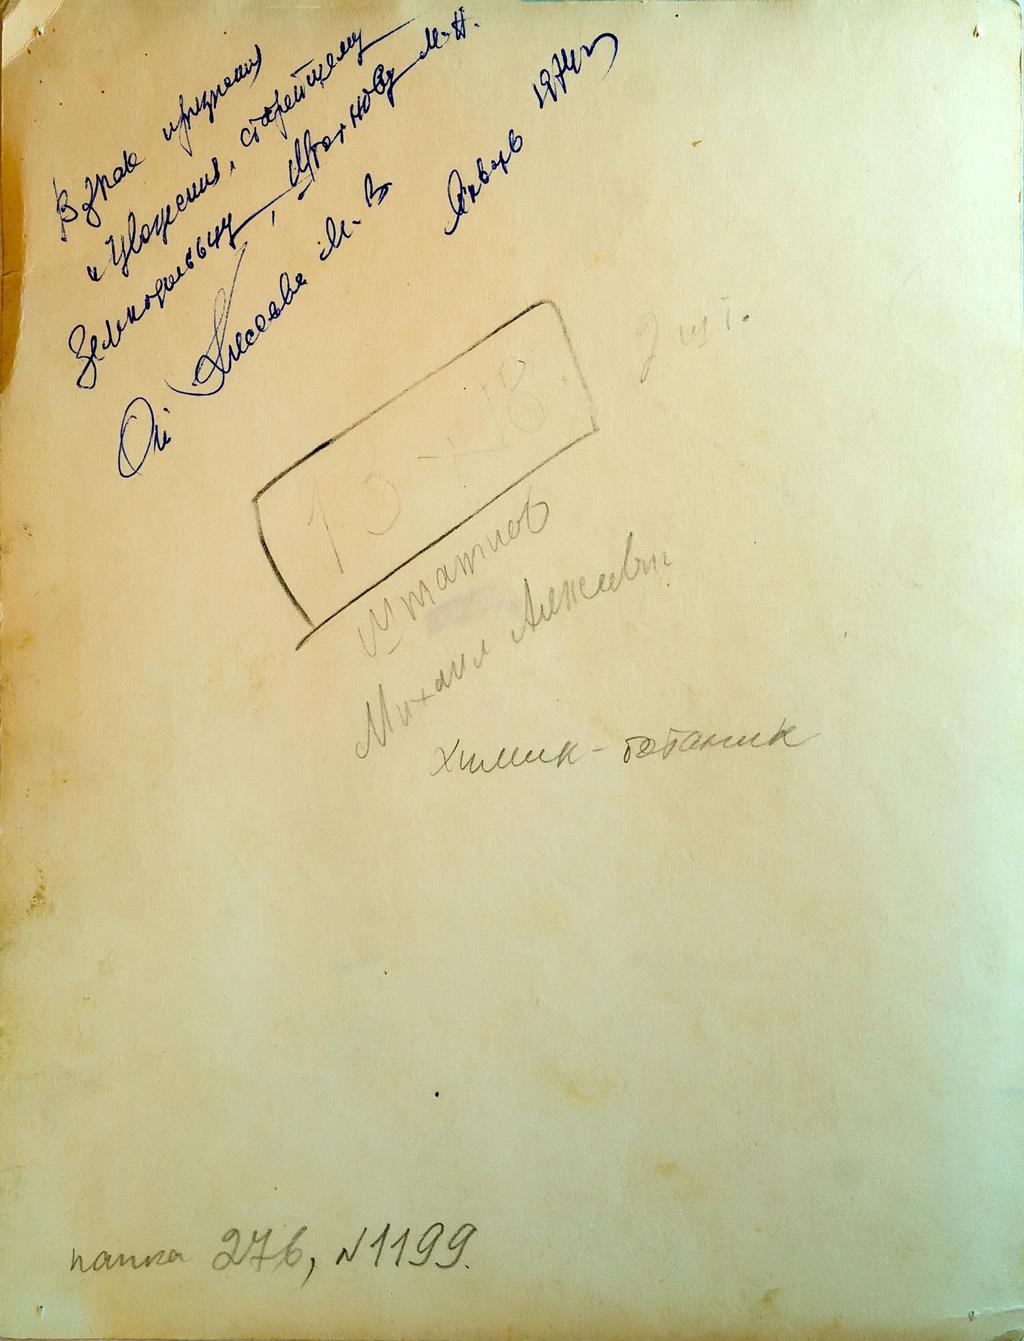 В знак признания
и уважения, старейшему
Землеройцу, Штахнову М.Н.
От Лисаева М.В
Январь 1974г
2 шт.
13 × 18
Штатнов
Михаил Алексеевич
химик-ботаник
папка 276, N1199.